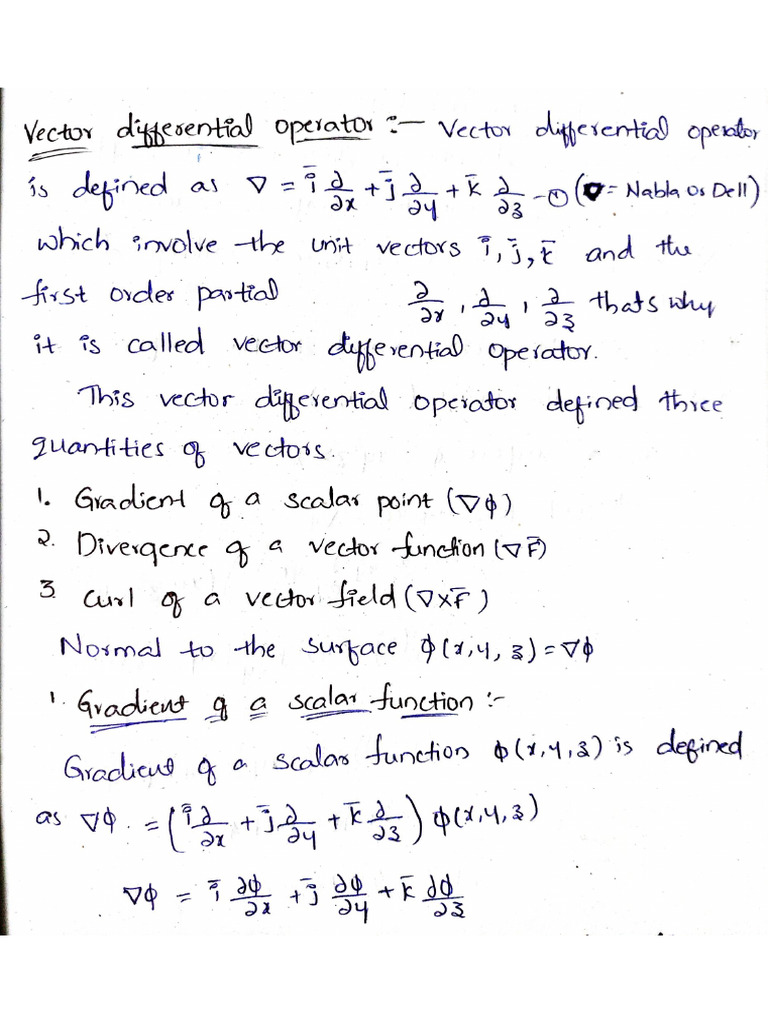 Vector differential operator :- Vector differential operator
is defined as ∇ = i̅ ∂/∂x + j̅ ∂/∂y + k̅ ∂/∂z -① (∇ = Nabla or Dell)
which involve the unit vectors i̅, j̅, k̅ and the
first order partial ∂/∂x, ∂/∂y, ∂/∂z thats why
it is called vector differential operator.
This vector differential operator defined three
quantities of vectors.
1. Gradient of a scalar point (∇ϕ)
2. Divergence of a vector function (∇ F̅)
3. curl of a vector field (∇×F̅)
Normal to the surface ϕ(x,y,z) = ∇ϕ
1. Gradient of a scalar function :-
Gradient of a scalar function ϕ(x,y,z) is defined
as ∇ϕ = (i̅ ∂/∂x + j̅ ∂/∂y + k̅ ∂/∂z) ϕ(x,y,z)
∇ϕ = i̅ ∂ϕ/∂x + j̅ ∂ϕ/∂y + k̅ ∂ϕ/∂z